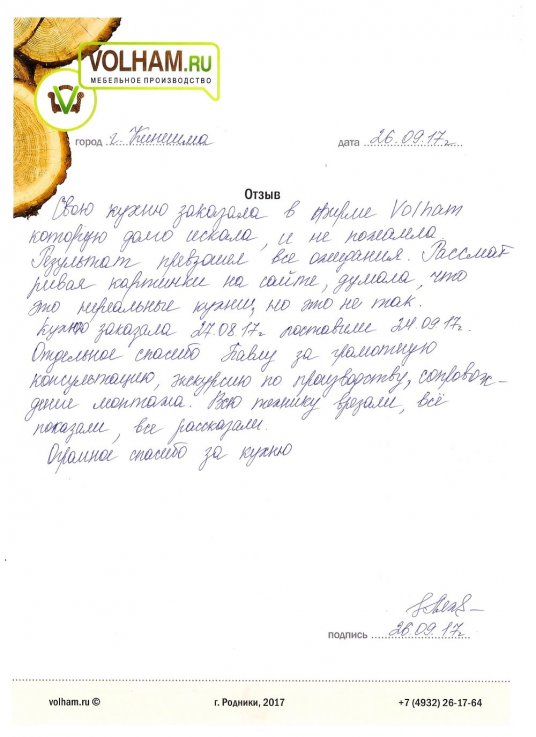 VOLHAM.RU
МЕБЕЛЬНОЕ ПРОИЗВОДСТВО
город г. Кинешма дата 26.09.17г.
Отзыв
Свою кухню заказала в фирме Volham
которую долго искала, и не пожалела.
Результат превзошел все ожидания. Рассмат
ривая картинки на сайте, думала, что
это нереальные кухни, но это не так.
Кухню заказала 27.08.17г. поставили 24.09.17г.
Отдельное спасибо Павлу за грамотную
консультацию, экскурсию по производству, сопровож-
дение монтажа. Всю технику врезали, всё
показали, все рассказали.
Огромное спасибо за кухню
подпись 26.09.17г
volham.ru © г. Родники, 2017 +7 (4932) 26-17-64